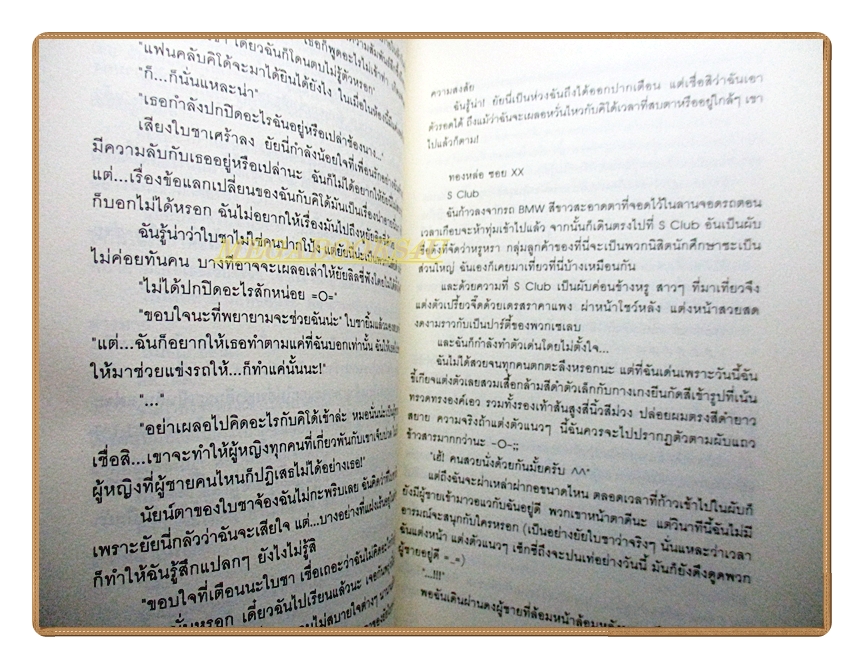 "แฟนคลับคิโด้จะมาได้ยินได้ยังไง ในเมื่อในห้องนี้มัน
"ก็...ก็นั่นแหละน่า"
"เธอกำลังปกปิดอะไรฉันอยู่หรือเปล่าข้องนาง..."
เสียงใบชาเศร้าลง ยัยนี่กำลังน้อยใจที่เพื่อนรักอย่าง
มีความลับกับเธออยู่หรือเปล่านะ ฉันก็ไม่ได้อยากให้
แต่...เรื่องข้อแลกเปลี่ยนของฉันกับคิโด้มันเป็นเรื่อง
ก็บอกไม่ได้หรอก ฉันไม่อยากให้เรื่องมันไปถึงหู
ฉันรู้น่าว่าใบชาไม่ใช่คนปากโป้ง
ไม่ค่อยทันคน บางทีอาจจะเผลอเล่าให้ยัยลิลซี่ฟังโดยไม่ได้
"ไม่ได้ปกปิดอะไรสักหน่อย =O="
"ขอบใจนะที่พยายามจะช่วยฉันน่ะ" ใบชายิ้ม
"แต่...ฉันก็อยากให้เธอทำตามแค่ที่ฉันบอกเท่านั้น
ให้มาช่วยแข่งรถให้...ก็ทำแค่นั้นนะ!"
"..."
"อย่าเผลอไปคิดอะไรกับคิโด้เข้าล่ะ หมอนั่นน่ะ
เชื่อสิ...เขาจะทำให้ผู้หญิงทุกคนที่เกี่ยวพันกับเขาเจ็บปวด
ผู้หญิงที่ผู้ชายคนไหนก็ปฏิเสธไม่ได้อย่างเธอ!"
นัยน์ตาของใบชาจ้องฉันไม่กะพริบเลย ฉันคิดว่า
เพราะยัยนี่กลัวว่าฉันจะเสียใจ แต่...บางอย่างที่
ก็ทำให้ฉันรู้สึกแปลกๆ ยังไงไม่รู้สิ
"ขอบใจที่เตือนนะใบชา เชื่อเถอะว่าฉันไม่คิดอะไร
เดี๋ยวฉันไปเรียนแล้วนะ
MEGABOOKS4U
ความสงสัย
ฉันรู้น่า! ยัยนี่เป็นห่วงฉันถึงได้ออกปากเตือน แต่เชื่อสิว่าฉันเอา
ตัวรอดได้ ถึงแม้ว่าฉันจะเผลอหวั่นไหวกับคิโด้เวลาที่สบตาหรืออยู่ใกล้ๆ เขา
ไปแล้วก็ตาม!
ทองหล่อ ซอย XX
S Club
ฉันก้าวลงจากรถ BMW สีขาวสะอาดตาที่จอดไว้ในลานจอดรถตอน
เวลาเกือบจะห้าทุ่มเข้าไปแล้ว จากนั้นก็เดินตรงไปที่ S Club อันเป็นผับ
ชื่อดังที่จัดว่าหรูหรา กลุ่มลูกค้าของที่นี่จะเป็นพวกนิสิตนักศึกษาซะเป็น
ส่วนใหญ่ ฉันเองก็เคยมาเที่ยวที่นี่บ้างเหมือนกัน
และด้วยความที่ S Club เป็นผับค่อนข้างหรู สาวๆ ที่มาเที่ยวจึง
แต่งตัวเปรี้ยวจี๊ดด้วยเดรสราคาแพง ผ่าหน้าโชว์หลัง แต่งหน้าสวยสด
งดงามราวกับเป็นปาร์ตี้ของพวกเซเลบ
และฉันก็กำลังทำตัวเด่นโดยไม่ตั้งใจ...
ฉันไม่ได้สวยจนทุกคนตกตะลึงหรอกนะ แต่ที่ฉันเด่นเพราะวันนี้ฉัน
ขี้เกียจแต่งตัวเลยสวมเสื้อกล้ามสีดำตัวเล็กกับกางเกงยีนกัดสีเข้ารูปที่เน้น
ทรวดทรงองค์เอว รวมทั้งรองเท้าส้นสูงสี่นิ้วสีม่วง ปล่อยผมตรงสีดำยาว
สยาย ความจริงถ้าแต่งตัวแนวๆ นี้ฉันควรจะไปปรากฏตัวตามผับแถว
ข้าวสารมากกว่านะ -O-;;
"เฮ้! คนสวยนั่งด้วยกันมั้ยครับ ^^"
แต่ถึงฉันจะผ่าเหล่าผ่ากอขนาดไหน ตลอดเวลาที่ก้าวเข้าไปในผับก็
ยังมีผู้ชายเข้ามาวอแวกับฉันอยู่ดี พวกเขาหน้าตาดีนะ แต่วินาทีนี้ฉันไม่มี
อารมณ์จะสนุกกับใครหรอก (เป็นอย่างยัยใบชาว่าจริงๆ นั่นแหละว่าเวลา
ฉันแต่งหน้า แต่งตัวแนวๆ เซ็กซี่ถึงจะปนเท่อย่างวันนี้ มันก็ยังดึงดูดพวก
ผู้ชายอยู่ดี =_=)
"...!!!"
พอฉันเดินผ่านดงผู้ชายที่ล้อมหน้าล้อมหลัง